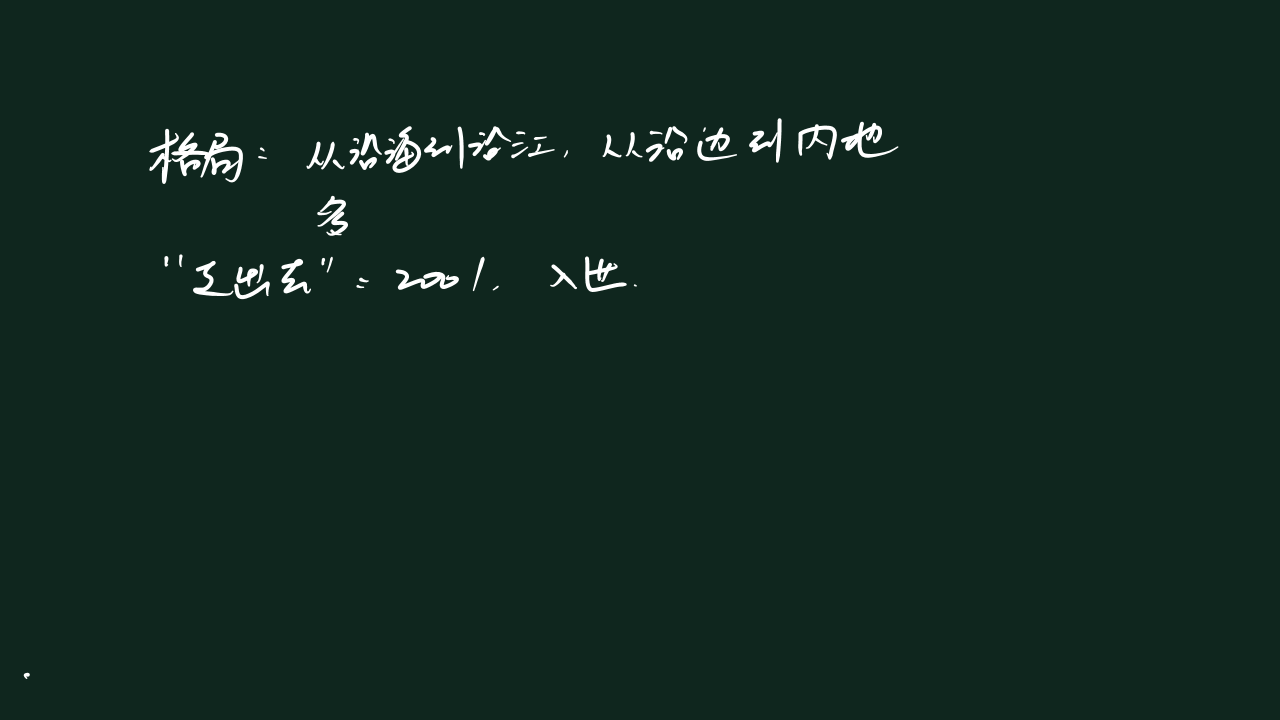 格局：从沿海到沿江，从沿边到内地
多
“走出去”：2001，入世.